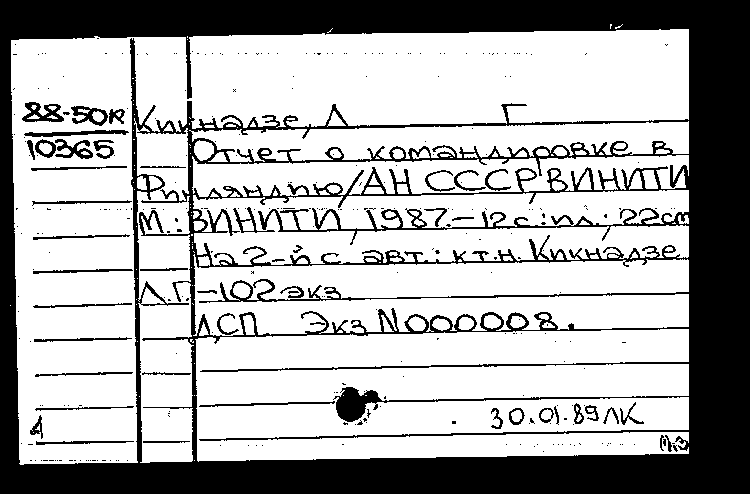 88-50к
10365
Кикнадзе, Л Г
Отчет о командировке в
Финляндию/АН СССР, ВИНИТИ
М.: ВИНИТИ, 1987.-12с.:ил.; 22см
На 2-й с. авт.: к.т.н. Кикнадзе
Л.Г. -102 экз.
ДСП Экз N000008.
30.01.89 ЛК